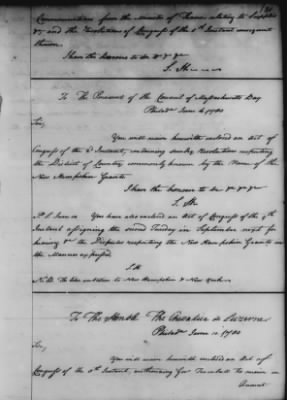 Communication from the Minister of France relating to Supplies
&c and the Resolutions of Congress of the 5th Instant consequent
thereon.
I have the honour to be &c &c &c
S. H
To The President of the Council of Massachusetts Bay
Philada June 6. 1780
Sir,
You will receive herewith enclosed an Act of
Congress of the 2d Instant, containing sundry Resolutions respecting
the District of Country commonly known by the Name of the
New Hampshire Grants.
I have the honour to be &c &c &c
S. H
P.S. June 10 You have also enclosed an Act of Congress of the 9th
Instant assigning the second Tuesday in September next for
hearing &c the Disputes respecting the New Hampshire Grants in
the Manner expressed.
S. H
N.B. The like written to New Hampshire & New York
To The Honble The Chevalier de Luzerne
Philada June 10 1780
Sir,
You will receive herewith enclosed an Act of
Congress of the 5th Instant, authorising Gov Trumbull to receive on
Account